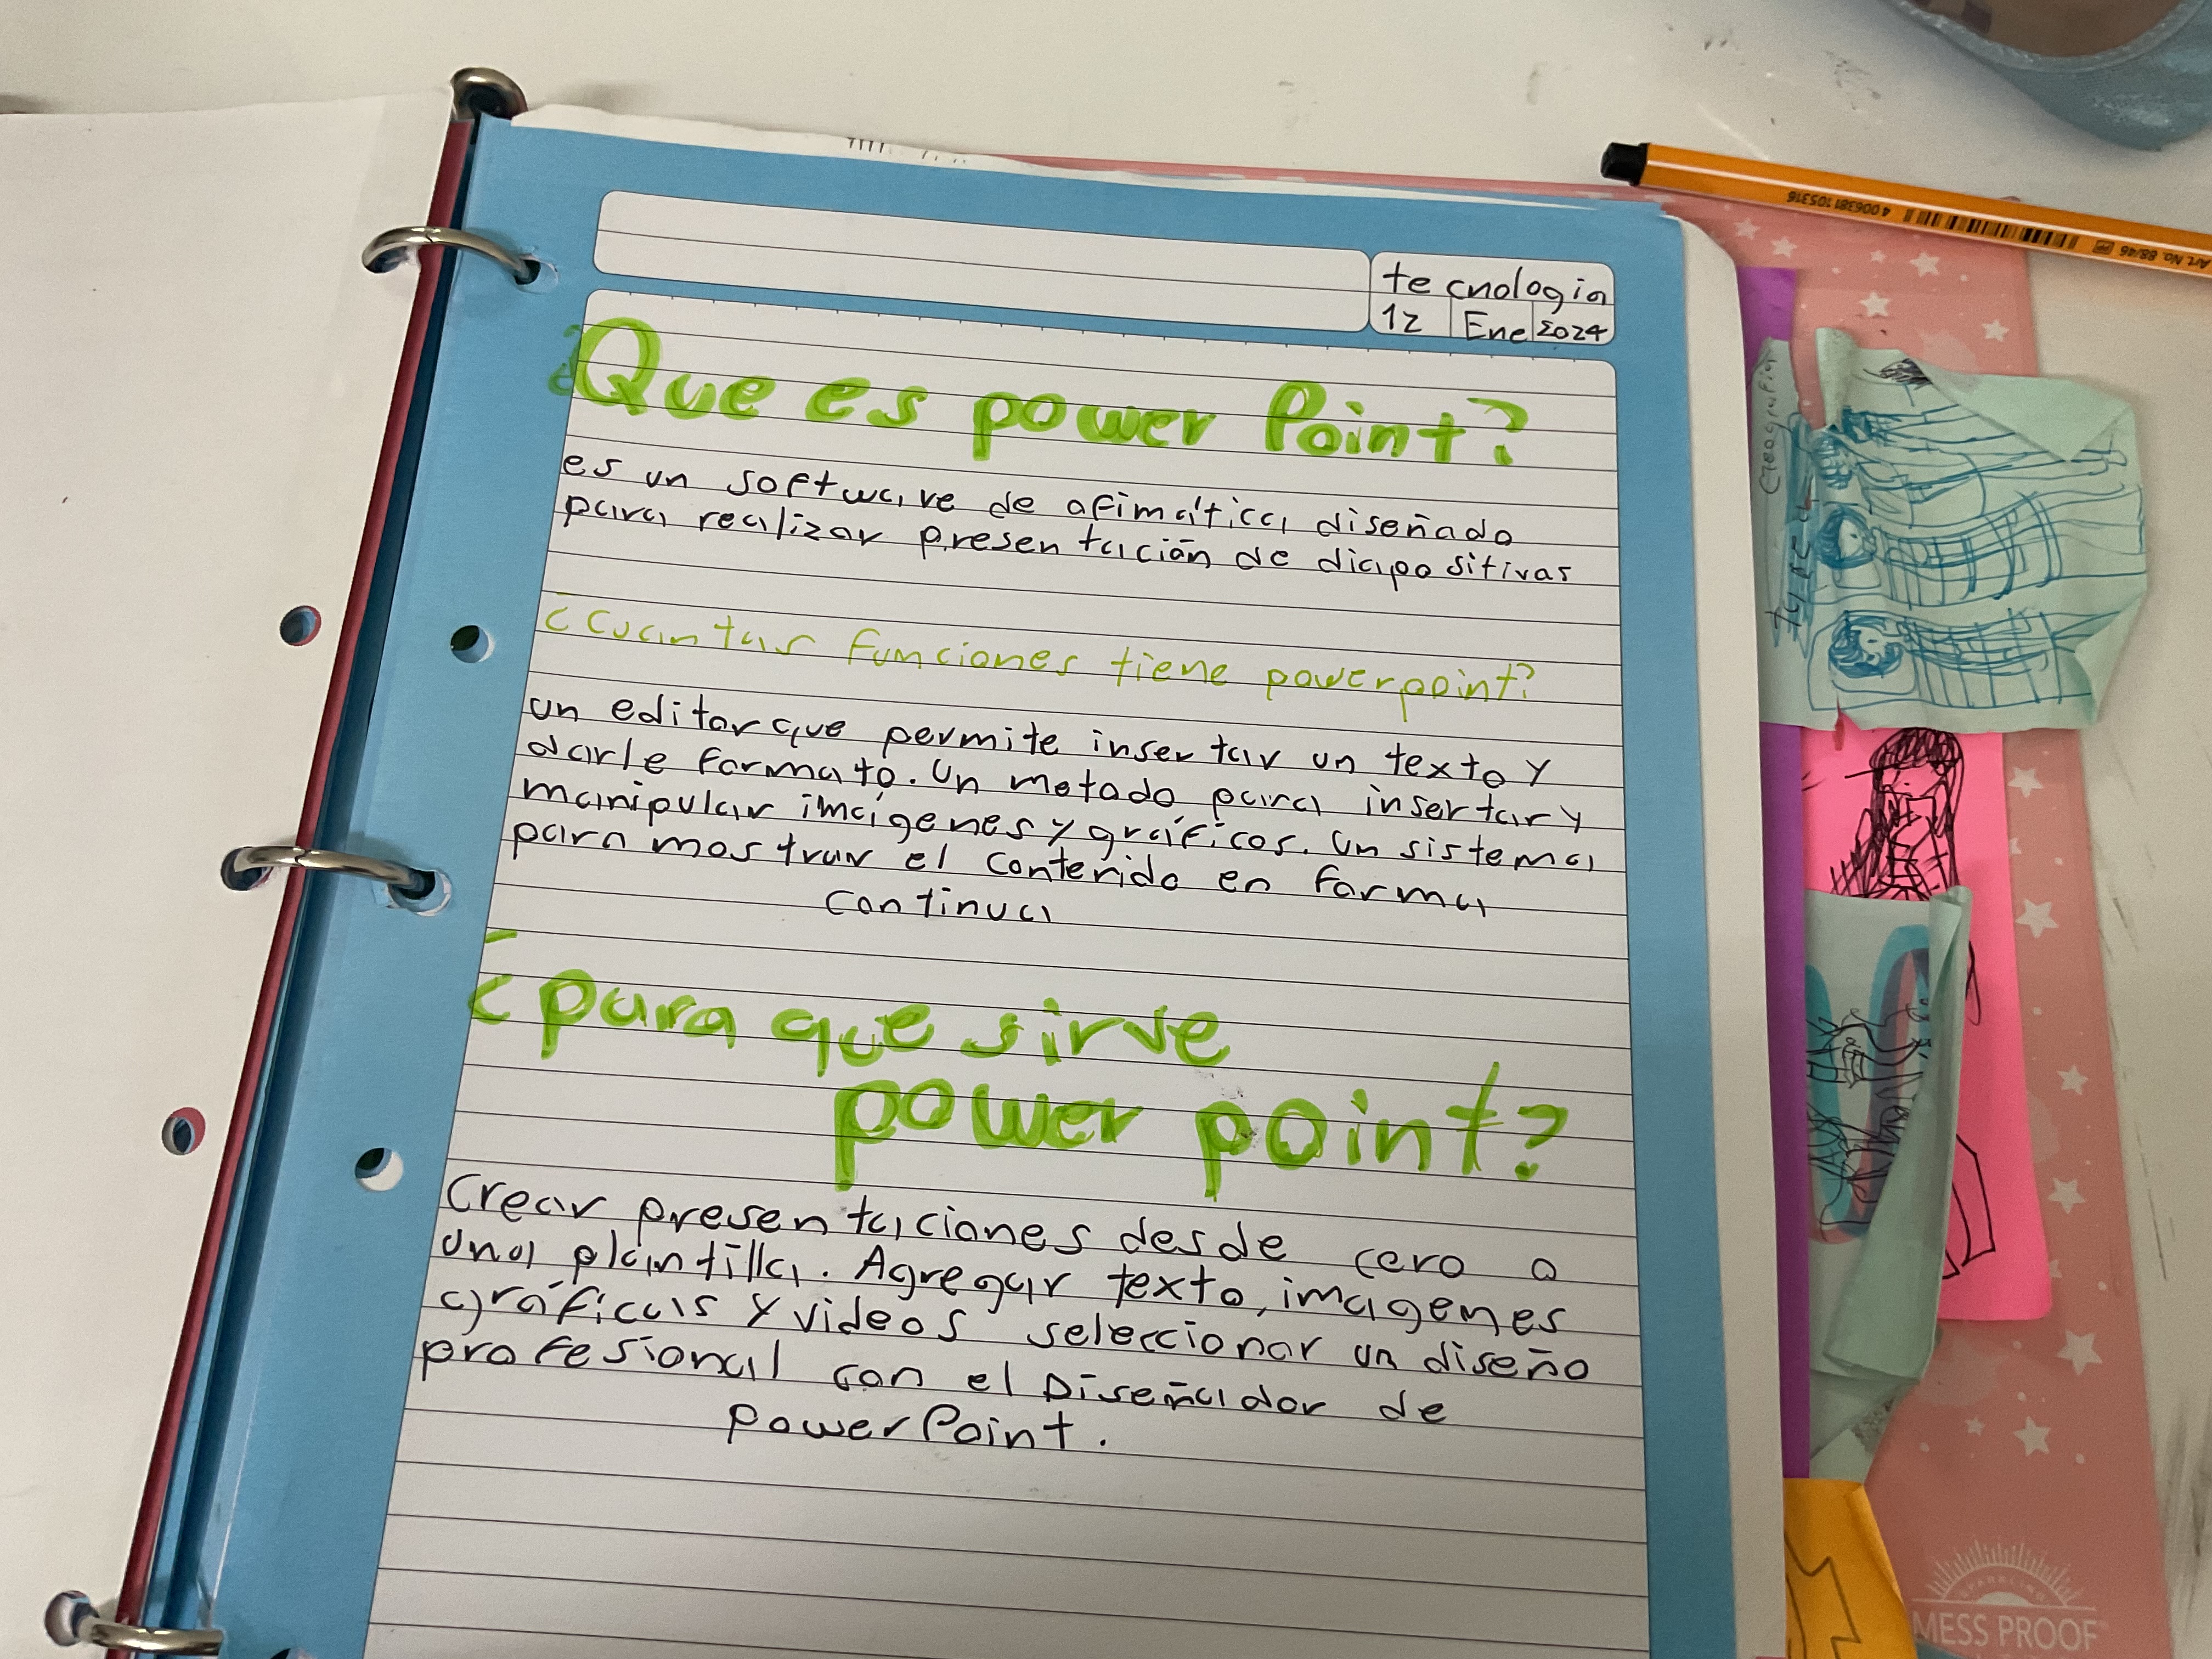 tecnologia
12 Ene 2024
¿Que es power Point?
es un software de ofimática diseñado
para realizar presentación de diapositivas
¿Cuantas funciones tiene powerpoint?
un editor que permite insertar un texto y
darle formato. Un metodo para insertar y
manipular imágenes y gráficos. Un sistema
para mostrar el contenido en forma
continua
¿para que sirve
power point?
Crear presentaciones desde cero o
una plantilla. Agregar texto, imagenes
gráficas y videos seleccionar un diseño
profesional con el Diseñador de
powerPoint.
4 006381 105316
Art. No. 88/46
Geografia
SPARKLING
MESS PROOF